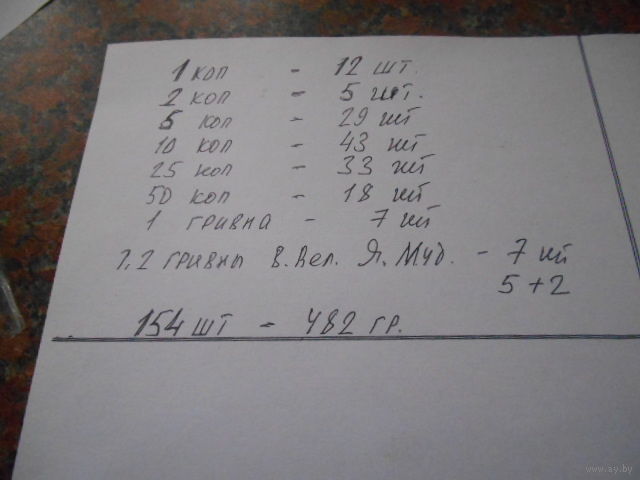 1 коп - 12 шт.
2 коп - 5 шт.
5 коп - 29 шт
10 коп - 43 шт
25 коп - 33 шт
50 коп - 18 шт
1 гривна - 7 шт
1,2 гривны В.Вел. Я.Муд. - 7 шт
5+2
154 шт - 482 гр.
www.ay.by